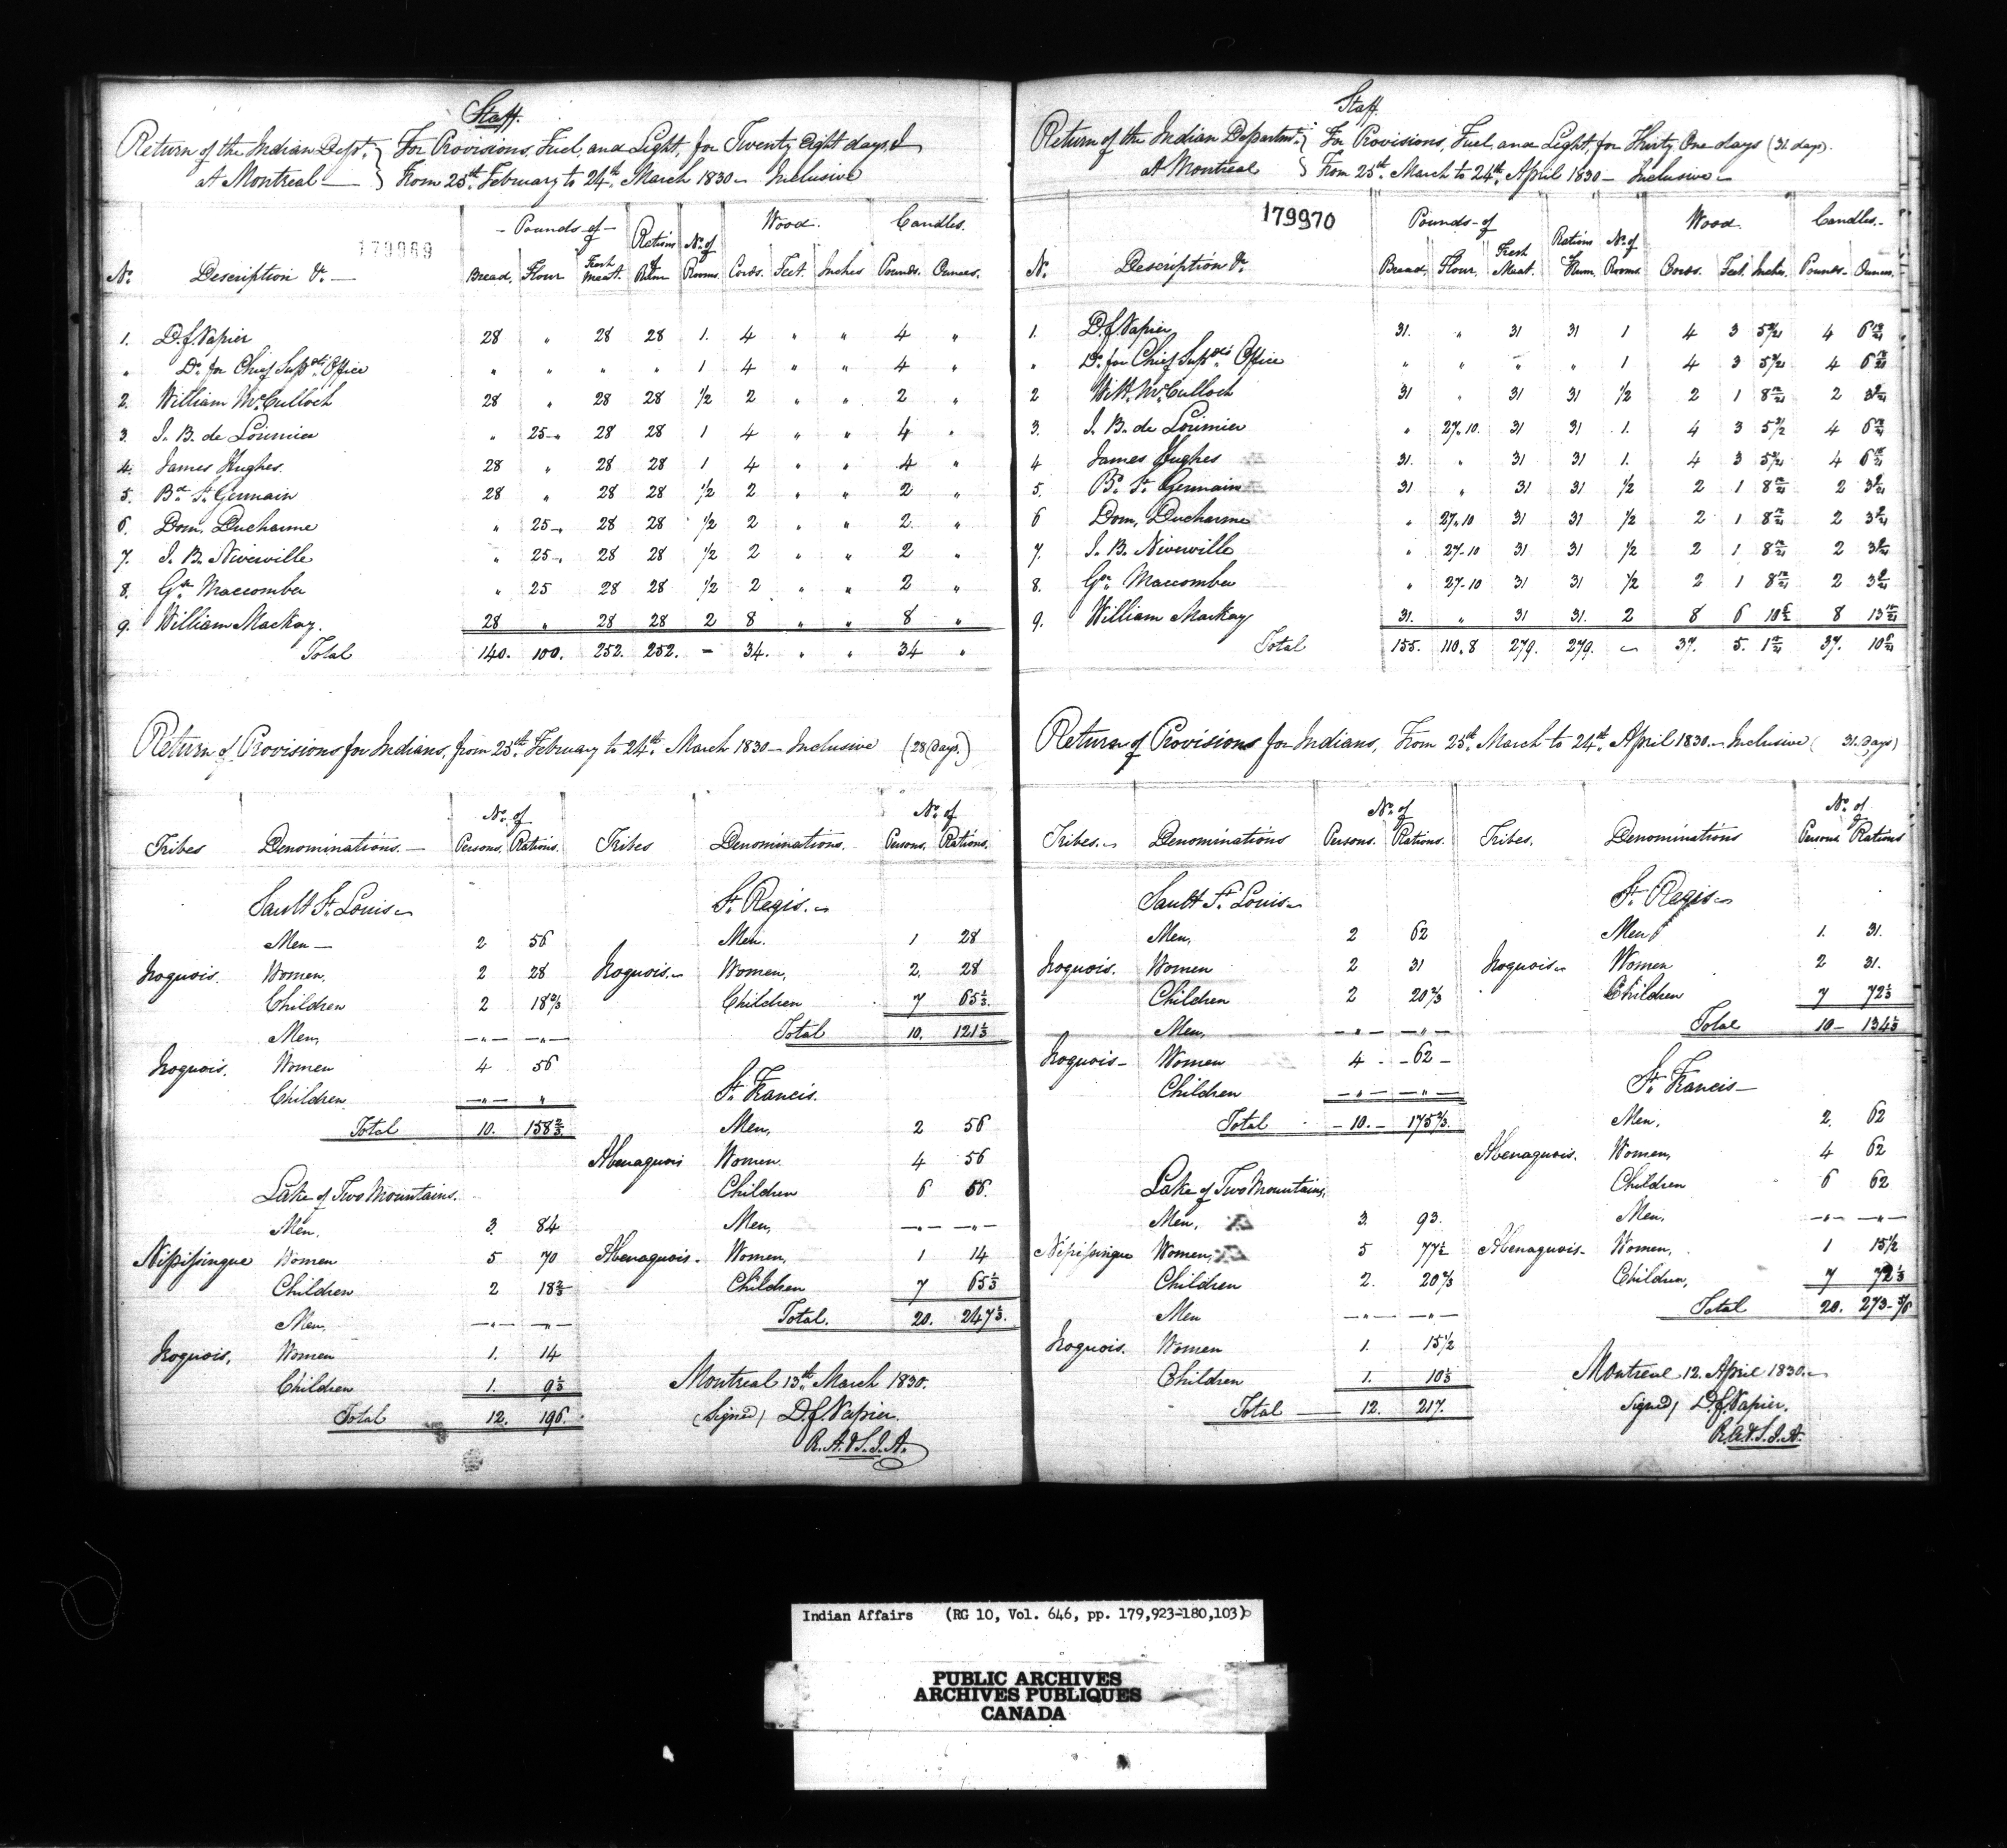 Staff.
Return of the Indian Dept. } For Provisions, Fuel, and Light, for Twenty Eight days,
at Montreal — } From 25th. February to 24th. March 1830 — Inclusive
179969
— Pounds of — Rations of Rum No. of Rooms Wood. Candles.
No. Description &c. — Bread. Flour Fresh Meat. Cords. Feet. Inches Pounds. Ounces.
1. D. C. Napier 28 " 28 28 1. 4 " " 4 "
" Do. for Chief Supdts. Office " " " " 1 4 " " 4 "
2. William McCulloch 28 " 28 28 1/2 2 " " 2 "
3. J. B. de Lorimier " 25 " 28 28 1 4 " " 4 "
4. James Hughes. 28 " 28 28 1 4 " " 4 "
5. Bd. St. Germain 28 " 28 28 1/2 2 " " 2 "
6. Dom. Ducharme " 25 " 28 28 1/2 2 " " 2 "
7. J. B. Niverville " 25 " 28 28 1/2 2 " " 2 "
8. Gn. Maccomber " 25 28 28 1/2 2 " " 2 "
9. William Mackay. 28 " 28 28 2 8 " " 8 "
Total 140. 100. 252. 252. — 34. " " 34 "
Return of Provisions for Indians, from 25th. February to 24th. March 1830 — Inclusive (28 Days.)
Tribes Denominations. — No. of Persons. Rations. Tribes Denominations. No. of Persons. Rations.
Sault St. Louis
Men — 2 56
Iroquois. Women, 2 28
Children 2 18 2/3
Men, — " — — " —
Iroquois. Women 4 56
Children — " — "
Total 10. 158 2/3
Lake of Two Mountains.
Men. 3. 84
Nipissingue Women 5 70
Children 2 18 2/3
Men. — " — — " —
Iroquois, Women 1. 14
Children 1. 9 1/3
Total 12. 196.
St. Regis.
Men. 1 28
Iroquois. Women, 2. 28
Children 7 65 1/3
Total 10. 121 1/3
St. Francis.
Men, 2 56
Abenaquois Women. 4 56
Children 6 56.
Men, — " — — " —
Abenaquois. Women, 1 14
Children 7 65 1/3
Total. 20. 247 1/3.
Montreal 13th. March 1830.
(Signed) D. C. Napier.
R. A. & S. I. A.
Staff.
Return of the Indian Departmt. } For Provisions, Fuel, and Light, for Thirty One days (31 days).
at Montreal } From 25th. March to 24th. April 1830 — Inclusive
179970
Pounds of Rations Rum. No. of Rooms. Wood. Candles.
No. Description &c. Bread. Flour. Fresh Meat. Cords. Feet. Inches. Pounds. Ounces.
1. D. C. Napier 31. " 31 31 1 4 3 5 4
" Do. for Chief Supdts. Office " " " " 1 4 3 5 4
2 Willm. McCulloch 31 " 31 31 1/2 2 1 8 2
3. J. B. de Lorimier " 27.10. 31 31 1. 4 3 5 4
4 James Hughes 31. " 31 31 1. 4 3 5 4
5. Bd. St. Germain 31 " 31 31 1/2 2 1 8 2
6 Dom. Ducharme " 27.10 31 31 1/2 2 1 8 2
7. J. B. Niverville " 27.10 31 31 1/2 2 1 8 2
8. Gn. Maccomber " 27.10 31 31 1/2 2 1 8 2
9. William Mackay 31. " 31 31. 2 8 6 10 8
Total 155. 110.8 279. 279. 37. 5. 37.
Return of Provisions for Indians, From 25th. March to 24th. April 1830. — Inclusive (31. Days)
Tribes. Denominations No. of Persons. Rations. Tribes. Denominations No. of Persons Rations
Sault St. Louis
Men, 2 62
Iroquois. Women 2 31
Children 2 20 2/3
Men, — " — — " —
Iroquois — Women 4 — 62 —
Children — " — — " —
Total — 10. — 175 2/3.
Lake of Two Mountains,
Men, 3. 93.
Nipissingue Women, 5 77 1/2
Children 2. 20 2/3
Men — " — — " —
Iroquois. Women 1. 15 1/2
Children 1. 10 1/3
Total — 12. 217.
St. Regis
Men 1. 31.
Iroquois Women 2 31.
Children 7 72 1/3
Total 10 — 134 1/3
St. Francis —
Men, 2. 62
Abenaquois. Women, 4 62
Children 6 62
Men, — " — — " —
Abenaquois — Women, 1 15 1/2
Children, 7 72 1/3
Total 20. 273 — 5/6
Montreal 12. April 1830.
Signed) D. C. Napier.
R. A. & S. I. A.
Indian Affairs (RG 10, Vol. 646, pp. 179,923-180,103)
PUBLIC ARCHIVES
ARCHIVES PUBLIQUES
CANADA